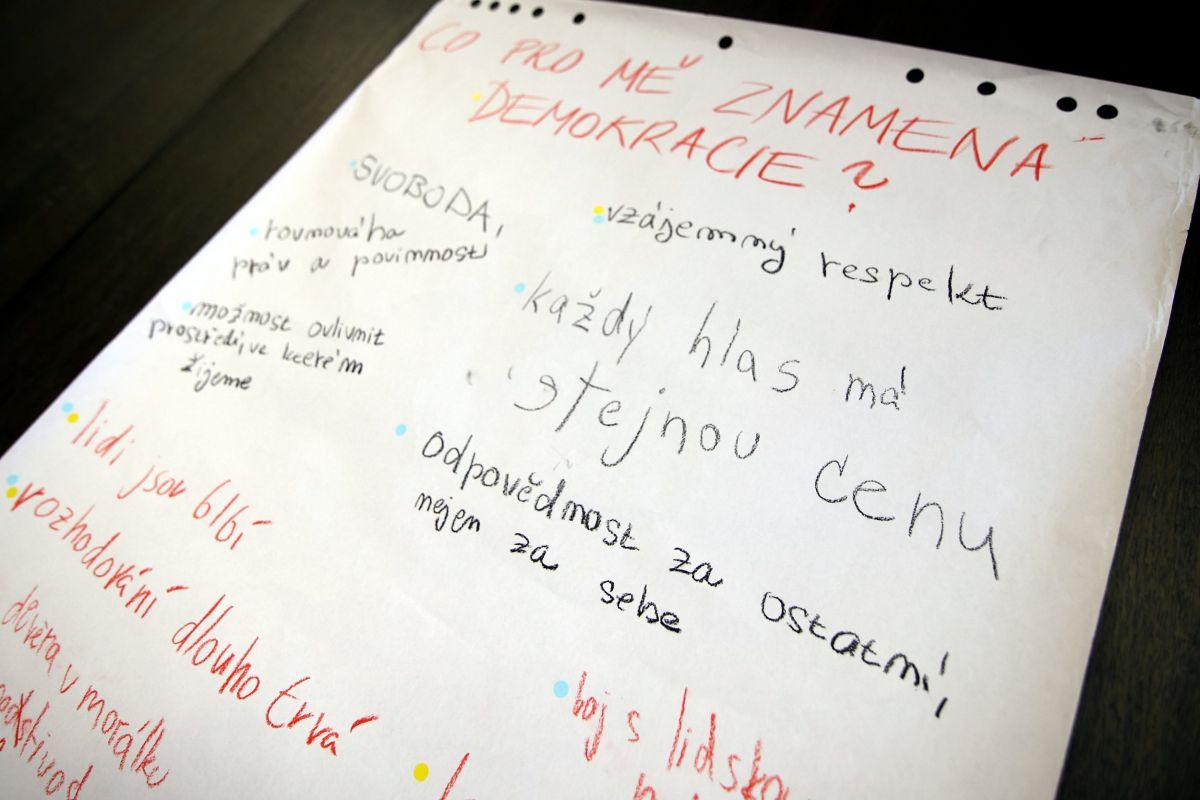 CO PRO MĚ ZNAMENÁ
DEMOKRACIE?
SVOBODA,
rovnováha
práv a povinností
možnost ovlivnit
prostředí, ve kterém
žijeme
vzájemný respekt
každý hlas má
stejnou cenu
odpovědnost za ostatní,
nejen za
sebe
lidi jsou blbí
rozhodování dlouho trvá
důvěra v morálku
boj s lidskou